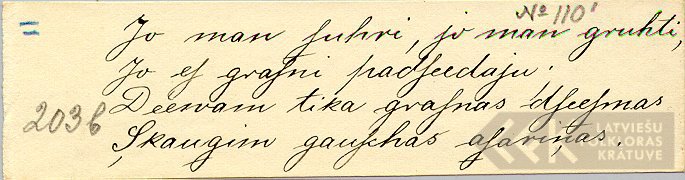 No 110
Jo man suhri, jo man gruhti,
Jo es grasni padseedaju:
Deewam tika grasnas dseesmas
2036
Skaugim gauschas asariņas.
LATVIEŠU
FOLKLORAS
KRĀTUVE